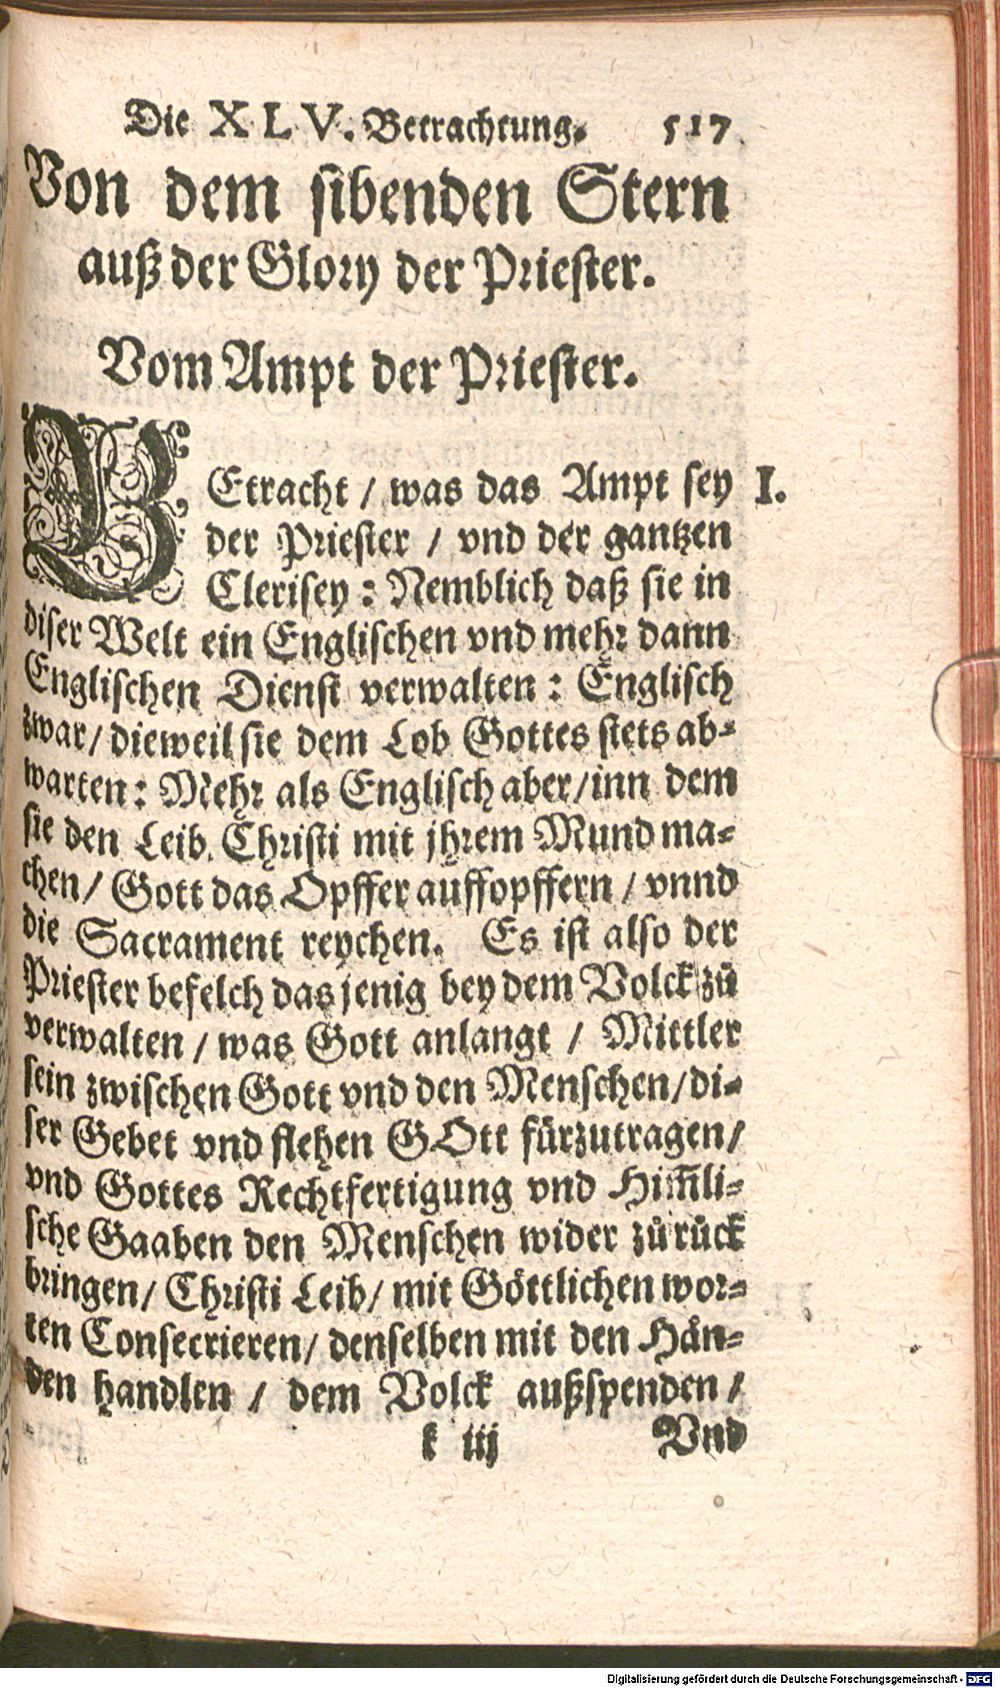 Die XLV. Betrachtung. 517
Von dem sibenden Stern
auß der Glory der Priester.
Vom Ampt der Priester.
BEtracht / was das Ampt sey I.
der Priester / vnd der gantzen
Clerisey : Nemblich daß sie in
diser Welt ein Englischen vnd mehr dann
Englischen Dienst verwalten : Englisch
zwar / dieweil sie dem Lob Gottes stets ab-
warten : Mehr als Englisch aber / inn dem
sie den Leib Christi mit jhrem Mund ma-
chen / Gott das Opffer auffopffern / vnnd
die Sacrament reychen. Es ist also der
Priester befelch das jenig bey dem Volck zů
verwalten / was Gott anlangt / Mittler
sein zwischen Gott vnd den Menschen / di-
ser Gebet vnd flehen GOtt fürzutragen /
vnd Gottes Rechtfertigung vnd Him̃li-
sche Gaaben den Menschen wider zů růck
bringen / Christi Leib / mit Göttlichen wor-
ten Consecrieren / denselben mit den Hån-
den handlen / dem Volck außspenden /
k iij Vnd
Digitalisierung gefördert durch die Deutsche Forschungsgemeinschaft - DFG